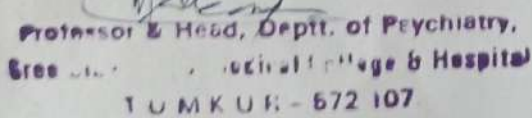 Professor & Head, Deptt. of Psychiatry,
Sree College & Hospital
TUMKUR - 572 107